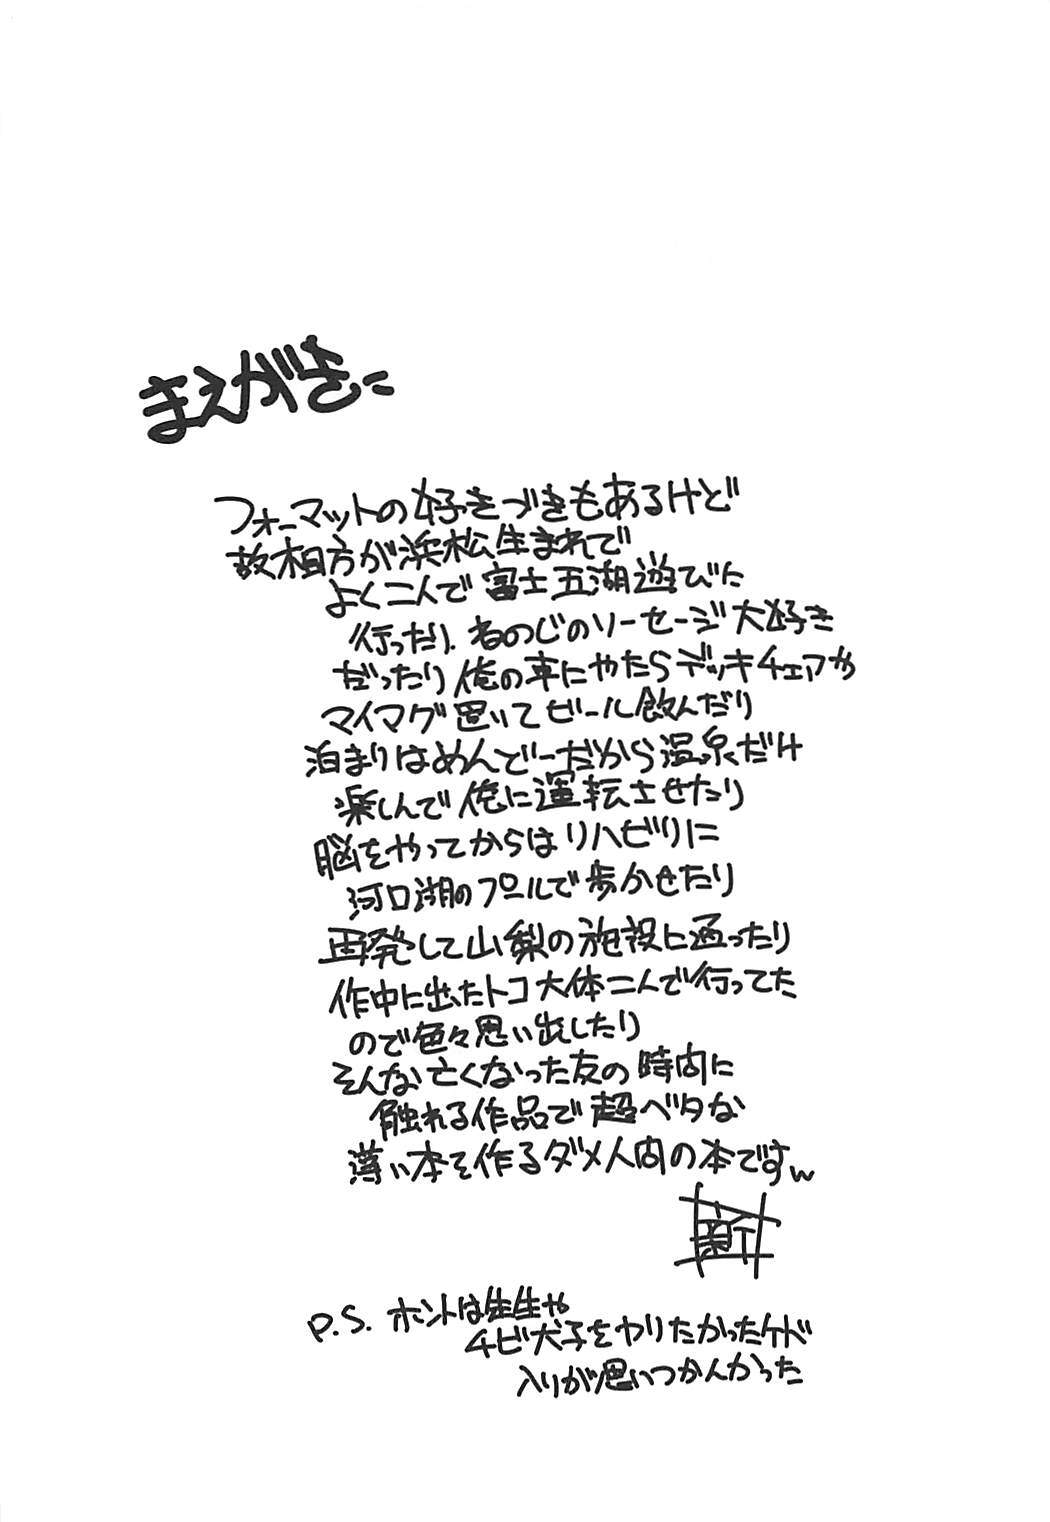 まえがきー
フォーマットの好きづきもあるけど
故相方が浜松生まれで
よく二人で富士五湖遊びに
行ったり、者のじのソーセージ大好き
だったり俺の車にやたらデッキチェアか
マイマグ置いてビール飲んだり
泊まりはめんどーだから温泉だけ
楽しんで俺に運転させたり
脳をやってからはリハビリに
河口湖のプールで歩かせたり
再発して山梨の施設に通ったり
作中に出たトコ大体二人で行ってた
ので色々思い出したり
そんな亡くなった友の時間に
触れる作品で超ベタな
薄い本を作るダメ人間の本ですw
P.S. ホントは先生や
チビ犬子をヤリたかったケド
入りが思いつかんかった